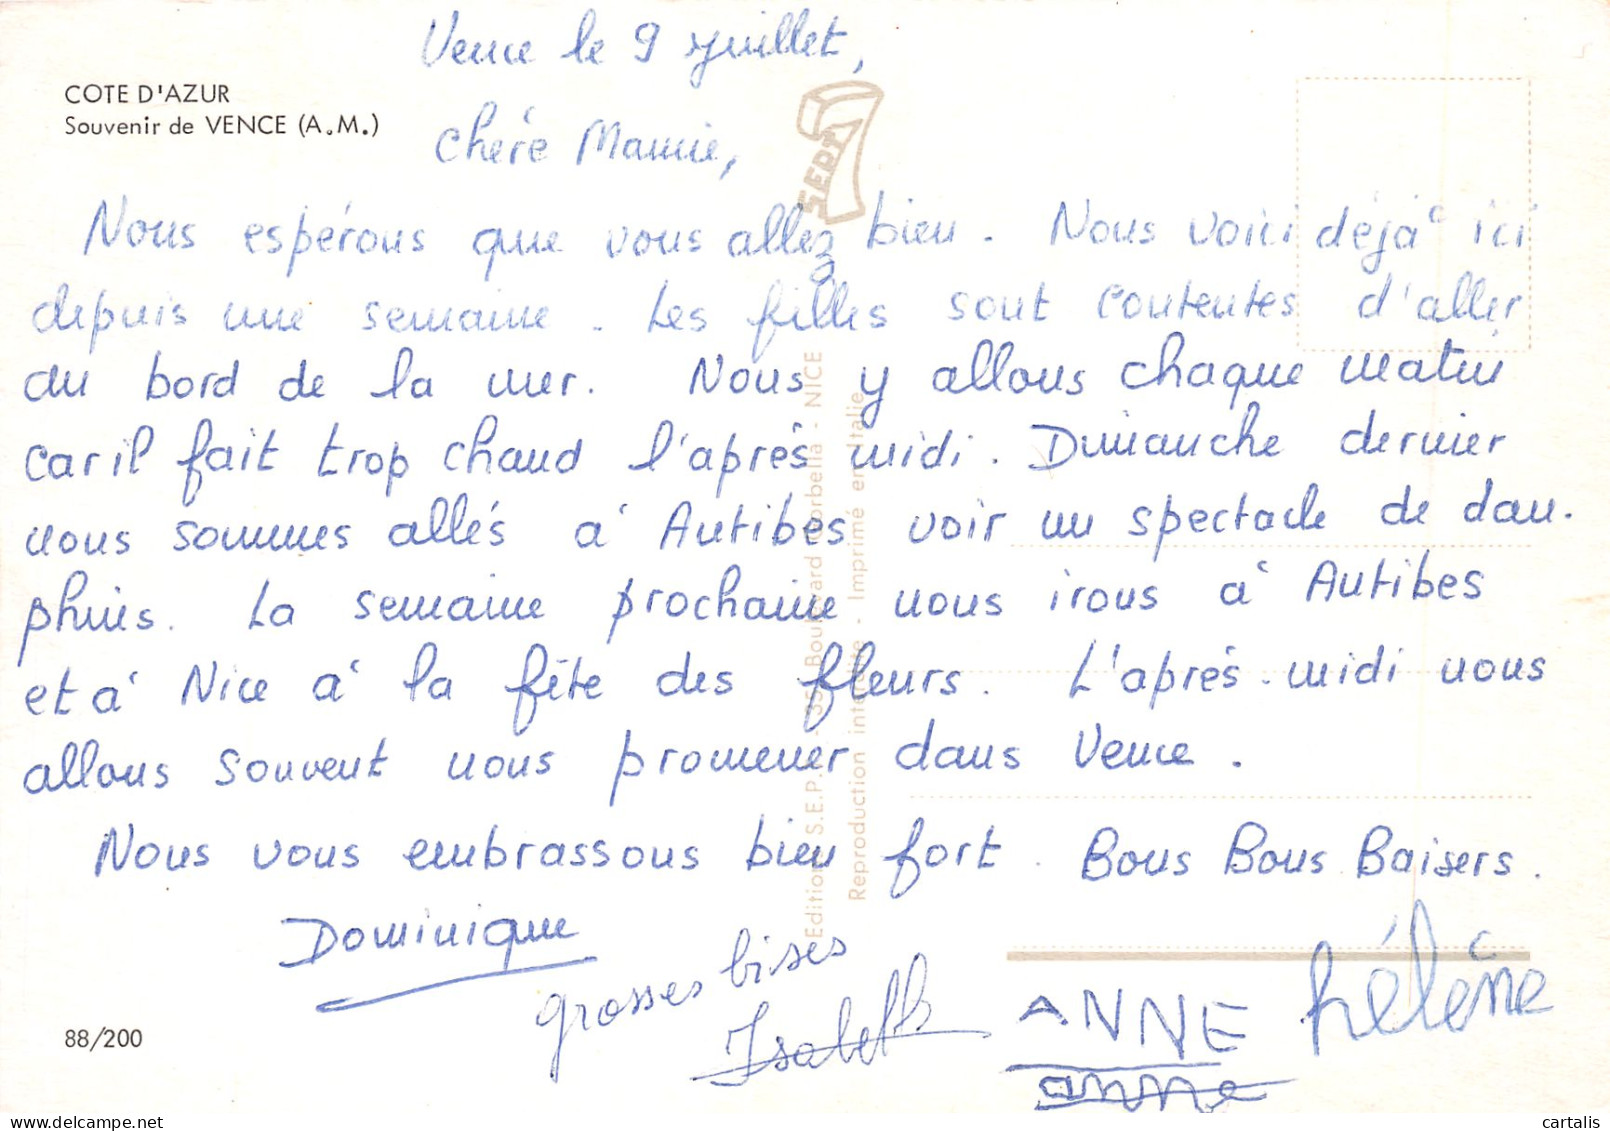 Vence le 9 juillet,
COTE D'AZUR
Souvenir de VENCE (A.M.)
chère Mamie,
SEPT
7
Nous espérons que vous allez bien. Nous voici déjà ici
depuis une semaine. Les filles sont contentes d'aller
au bord de la mer. Nous y allons chaque matin
car il fait trop chaud l'après midi. Dimanche dernier
nous sommes allés à Antibes voir un spectacle de dau-
phins. La semaine prochaine nous irons à Antibes
et à Nice à la fête des fleurs. L'après-midi nous
allons souvent nous promener dans Vence.
Nous vous embrassons bien fort. Bons Bons Baisers.
Dominique
grosses bises
Isabelle
ANNE
anne
hélène
Reproduction interdite - Imprimé en Italie
88/200
www.delcampe.net
cartalis